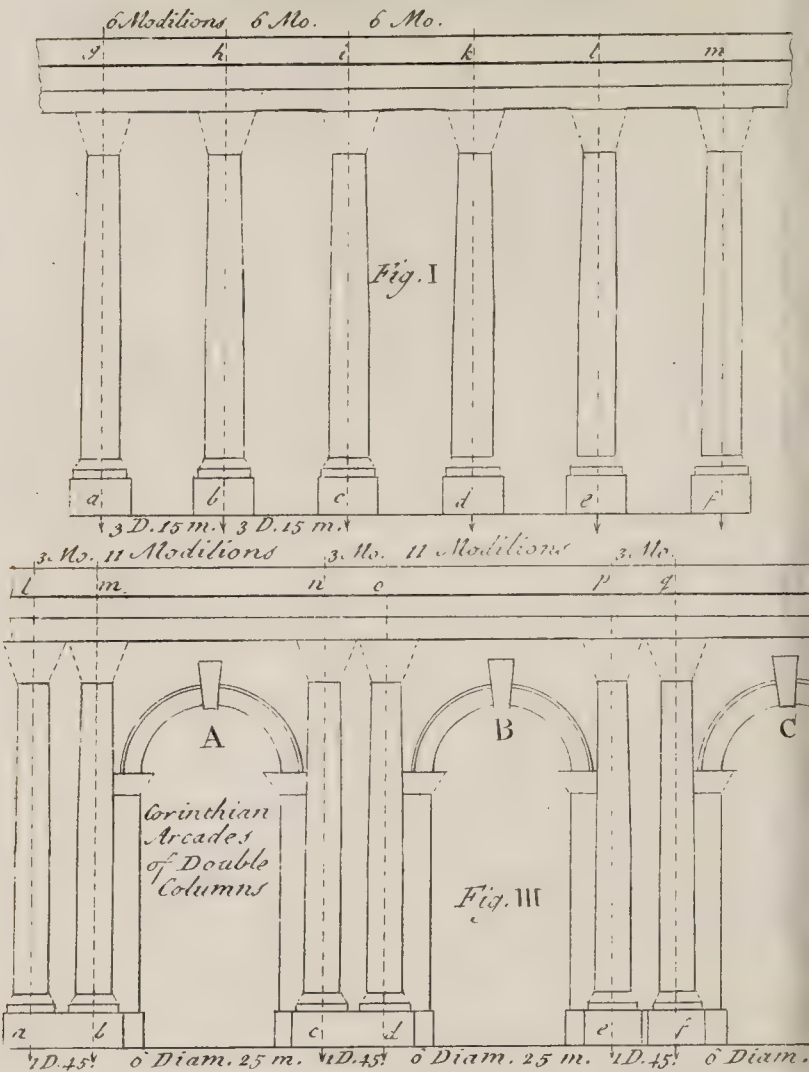 6 Moditions 6 Mo. 6 Mo.
g h i k l m
Fig. I
a b c d e f
3 D. 15 m. 3 D. 15 m.
3 Mo. 11 Moditions 3 Mo. 11 Moditions 3 Mo.
l m n o p q
A B C
Corinthian
Arcades
of Double
Columns
Fig. III
a b c d e f
1 D. 45. 6 Diam. 25 m. 1 D. 45. 6 Diam. 25 m. 1 D. 45. 6 Diam.